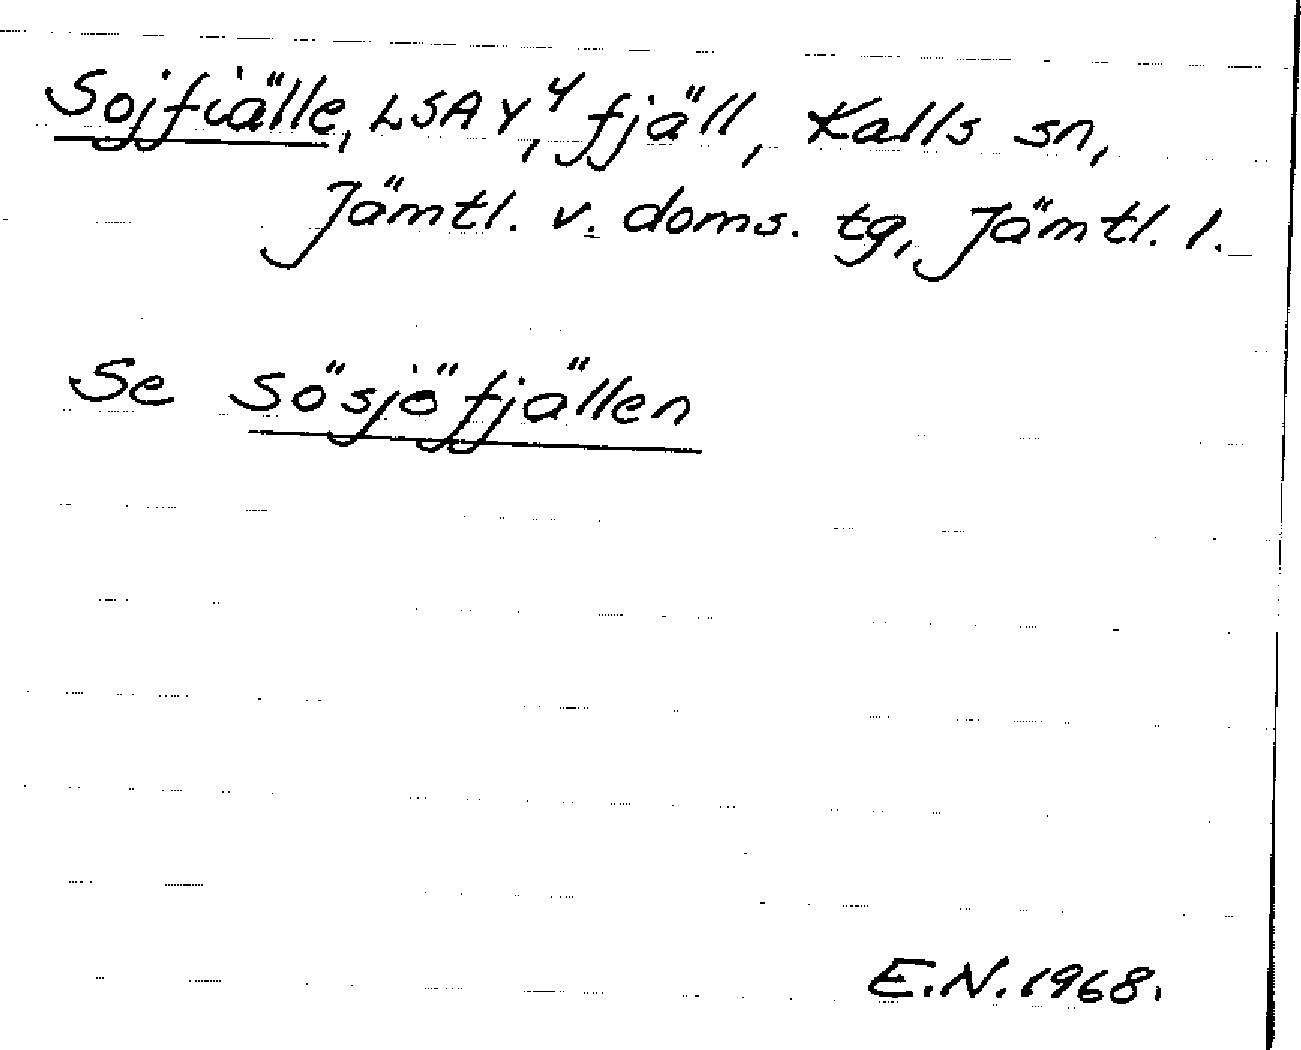 Sojfiälle, LSA Y⁴, fjäll, Kalls sn,
Jämtl. v. doms. tg, Jämtl. l.
Se Sösjöfjällen
E.N. 1968.